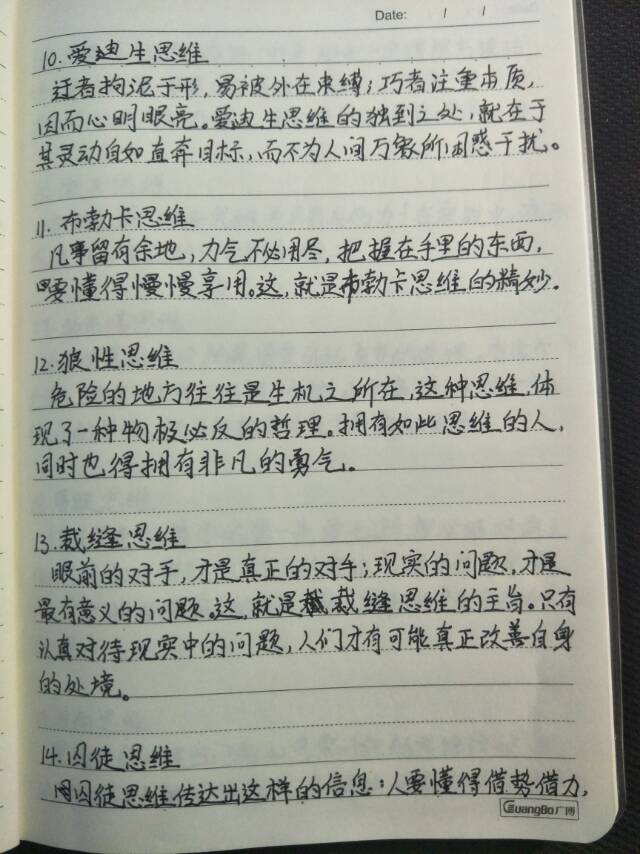 Date: / /
10. 爱迪生思维
迂者拘泥于形，易被外在束缚；巧者注重本质，
因而心明眼亮。爱迪生思维的独到之处，就在于
其灵动自如直奔目标，而不为人间万象所困惑干扰。
11. 布勃卡思维
凡事留有余地，力气不必用尽，把握在手里的东西，
要懂得慢慢享用。这，就是布勃卡思维的精妙.
12. 狼性思维
危险的地方往往是生机之所在，这种思维，体
现了一种物极必反的哲理。拥有如此思维的人，
同时也得拥有非凡的勇气。
13. 裁缝思维
眼前的对手，才是真正的对手；现实的问题，才是
最有意义的问题。这，就是裁缝思维的主旨。只有
认真对待现实中的问题，人们才有可能真正改善自身
的处境。
14. 囚徒思维
囚徒思维传达出这样的信息：人要懂得借势借力，
GuangBo广博